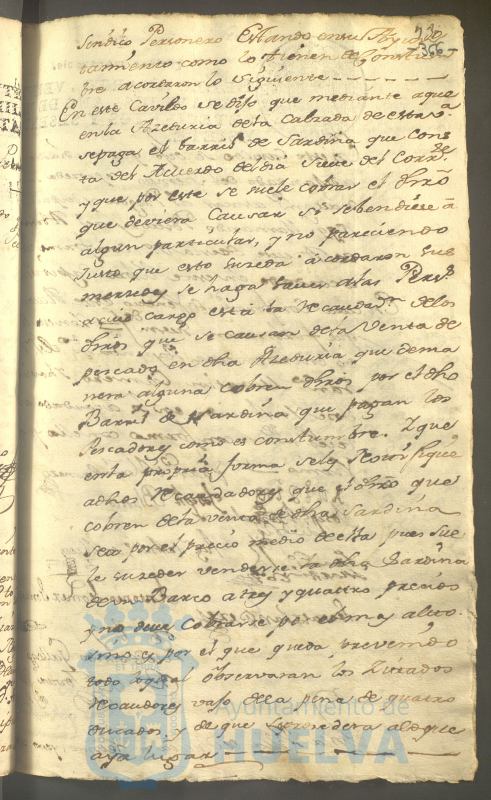 230
366
Sindico Personero Estando en su Ayun
tamiento como lo tienen de Costum
bre acordaron lo siguiente
En este Cavildo se dijo que mediante a que
en la Azeduria de la Calzada de esta v.ª
se paga el barril de Sardina que Cons
ta del Acuerdo del dia Nueve del Corr.te
y que por este se suele cobrar el dro
que deviera Causar si se bendiese â
algun particular, y no pareciendo
Justo que esto suceda acordaron sus
mercedes se haga saver a las Pers.s
a cuio cargo está la Recaudaz.n de los
dros que se causan de la Venta de
pescado en dha Azeduria que de ma
nera alguna cobren dros por el dho
Barril de Sardina que pagan los
Pescadores como es constumbre. Y que
en la propria forma se les Notifique
a dhos Recaudadores que el dro que
cobren de la venta de dha Sardina
sea por el precio medio de esta pues sue
le suceder venderse la dha Sardina
de un Barco a tres y quatro precios
y no deve Cobrarse por el mas alto
sino por el que queda prevenido
todo lo qual observaran los zitados
Recaudores vajo de la pena de quatro
ducados y de que se prozedera a lo que
aya lugar
Ayuntamiento de
HUELVA